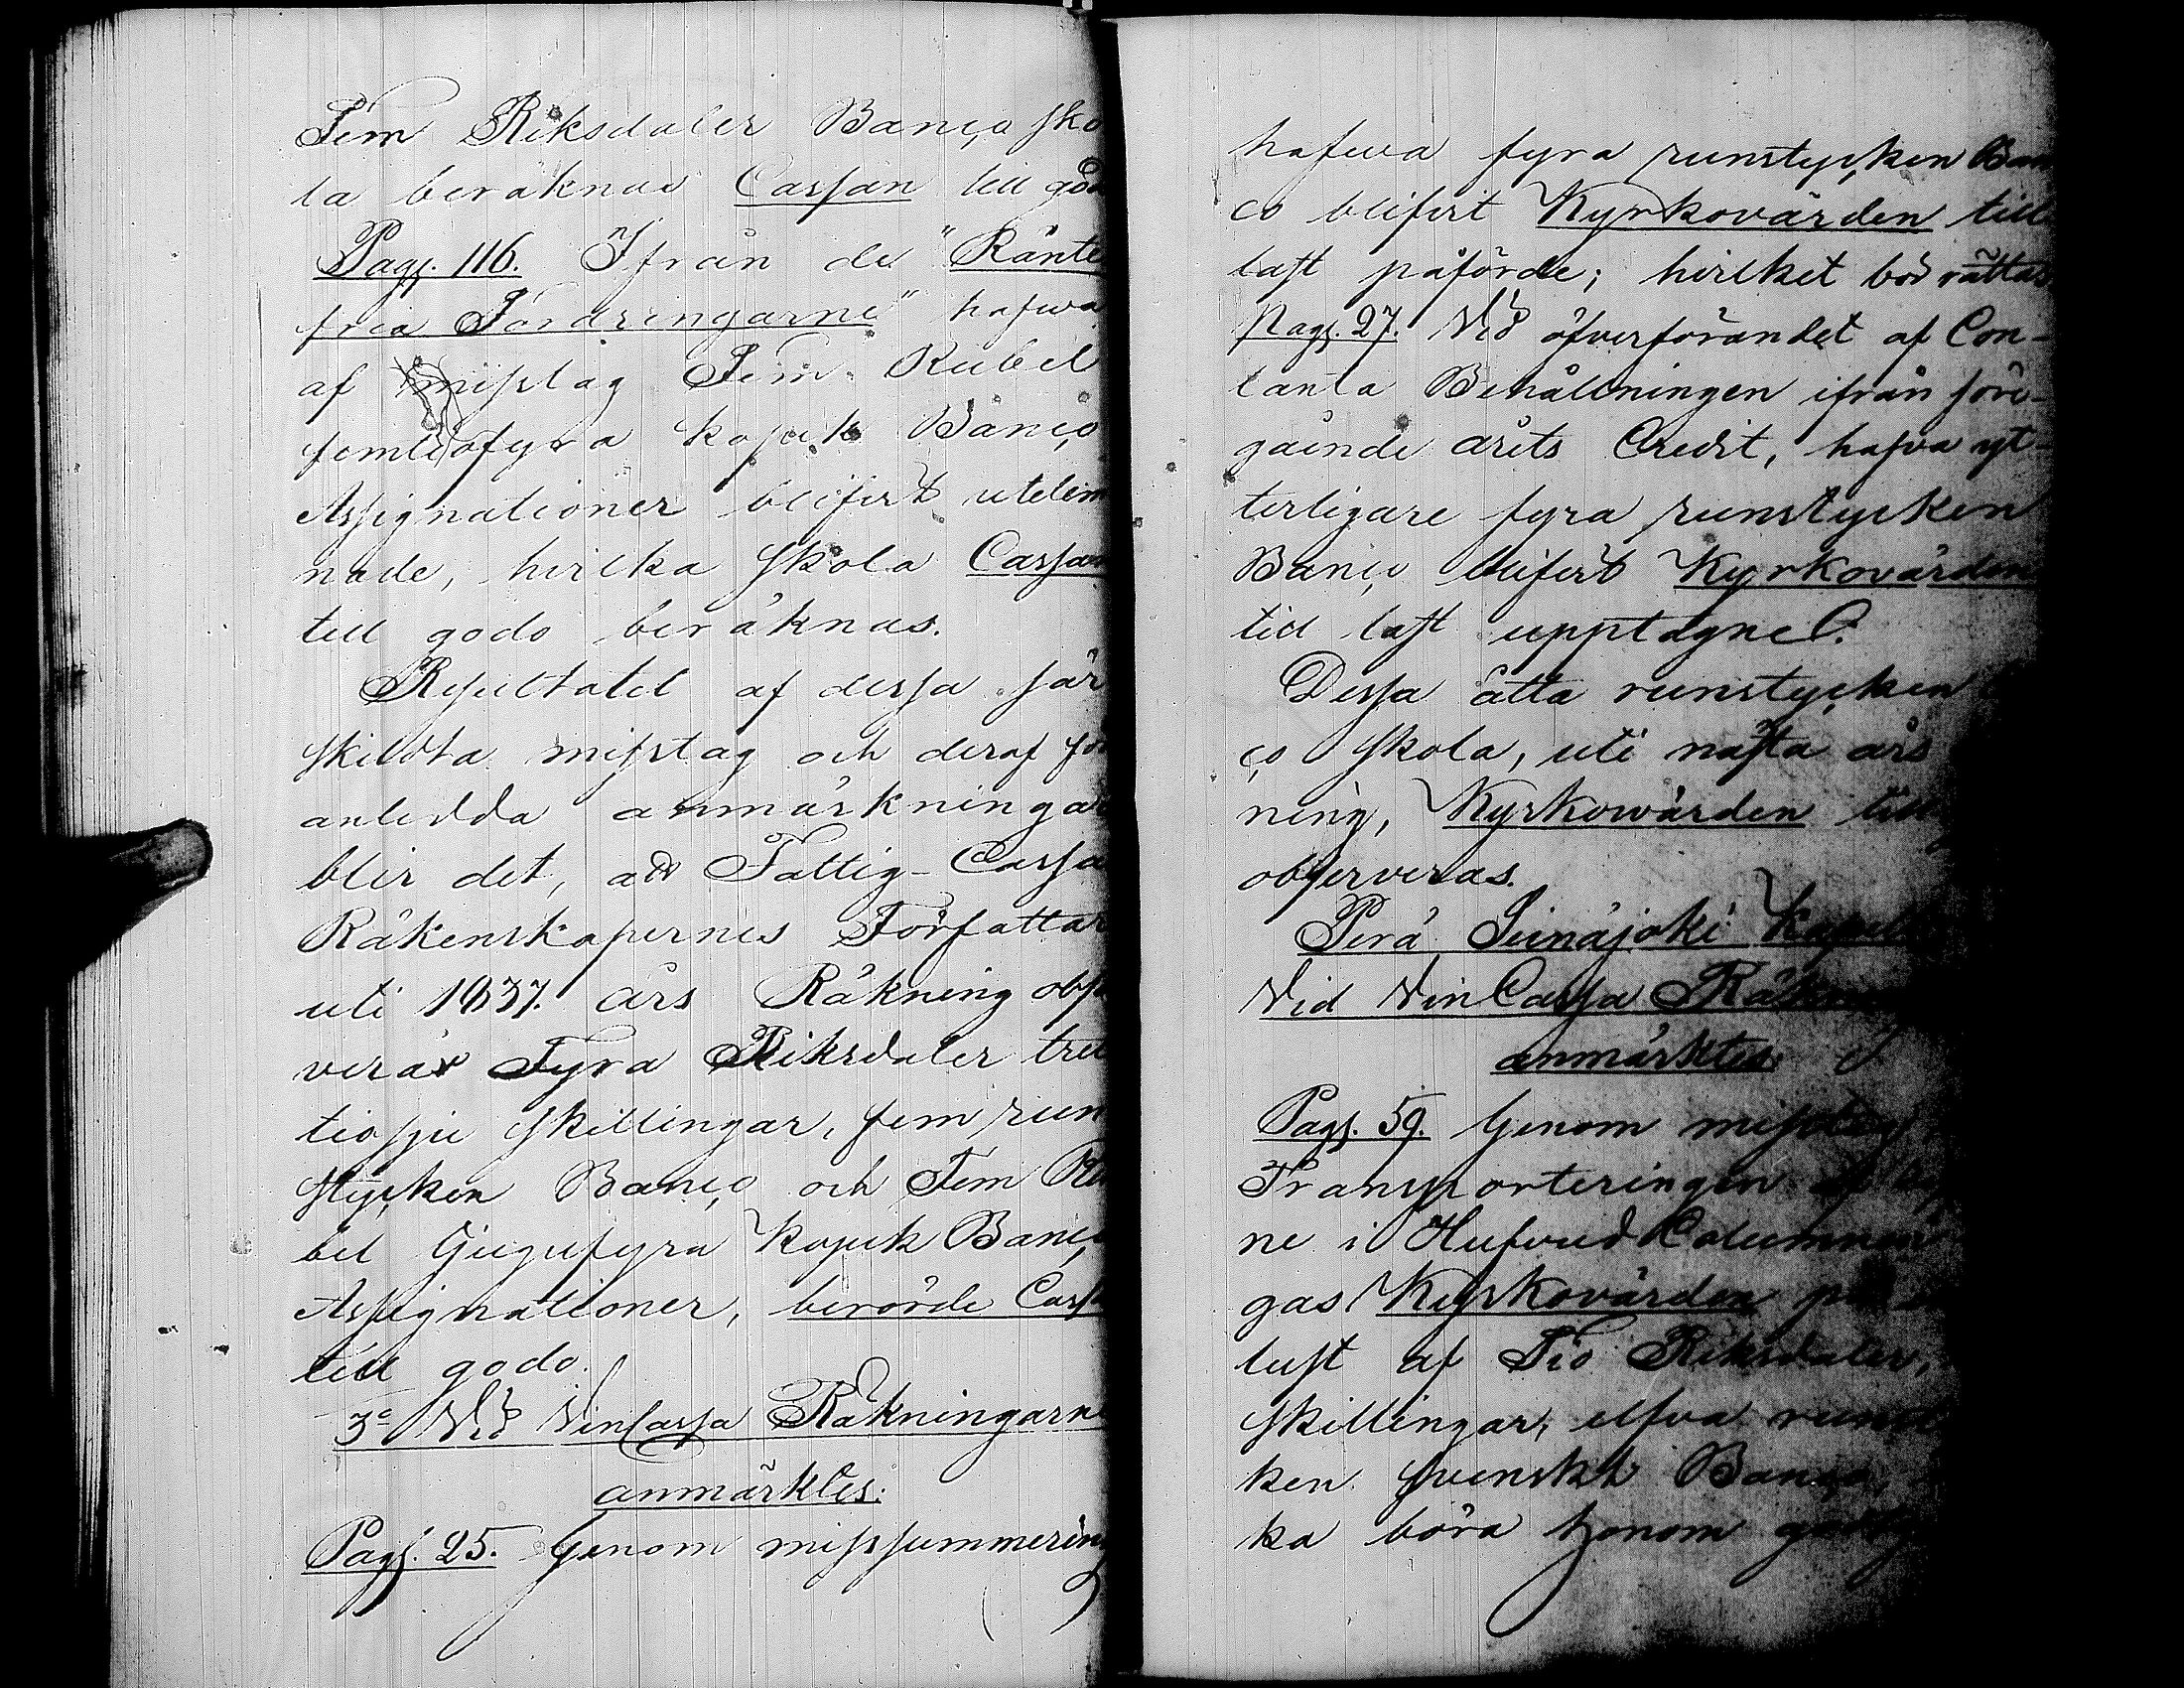 Fem Riksdaler Banco sko
la beräknas Cassan till godo
Pag. 116. Ifrån de "Ränte
fria Fordringarne" hafwa
af misstag Fem Rubel
femtiofyra kopek Banco
Assignationer blifvit utelem
nade, hvilka skola Cassan
till godo beräknas.
Resultatet af dessa sär
skildta misstag och deraf för
anledda anmärkningar
blir det, att Fattig-Cassa
Räkenskapernes Författare
uti 1837. års Räkning obser
verar Fyra Riksdaler tret
tiosju skillingar, fem run
stycken Banco och Fem Ru
bel Tjugufyra kopek Banco
Assignationer, berörde Cassa
till godo.
3o Vid VinCassa Räkningarne
anmärktes:
Pag. 25. Genom missummering
hafwa fyra runstycken Ban
co blifvit Kyrkovärden till
last påförde; hvilket bör rättas.
Pag. 27. Vid öfverförandet af Con-
tanta Behållningen ifrån före-
gående årets Credit, hafva yt-
terligare fyra runstycken
Banco blifvit Kyrkovärden
till last upptagne.
Dessa åtta runstycken
co skola, uti nästa års
ning, Kyrkowärden till
observeras.
Perä Seinäjoki Kapell
Vid VinCassa Räkn
anmärktes:
Pag. 59. Genom misstag
Transporteringen af
ne i Hufvud Columnen
gas Kyrkovärden
lust af Tio Riksdaler,
skillingar, elfva runst
ken svenskt Banco,
ka böra honom godtg